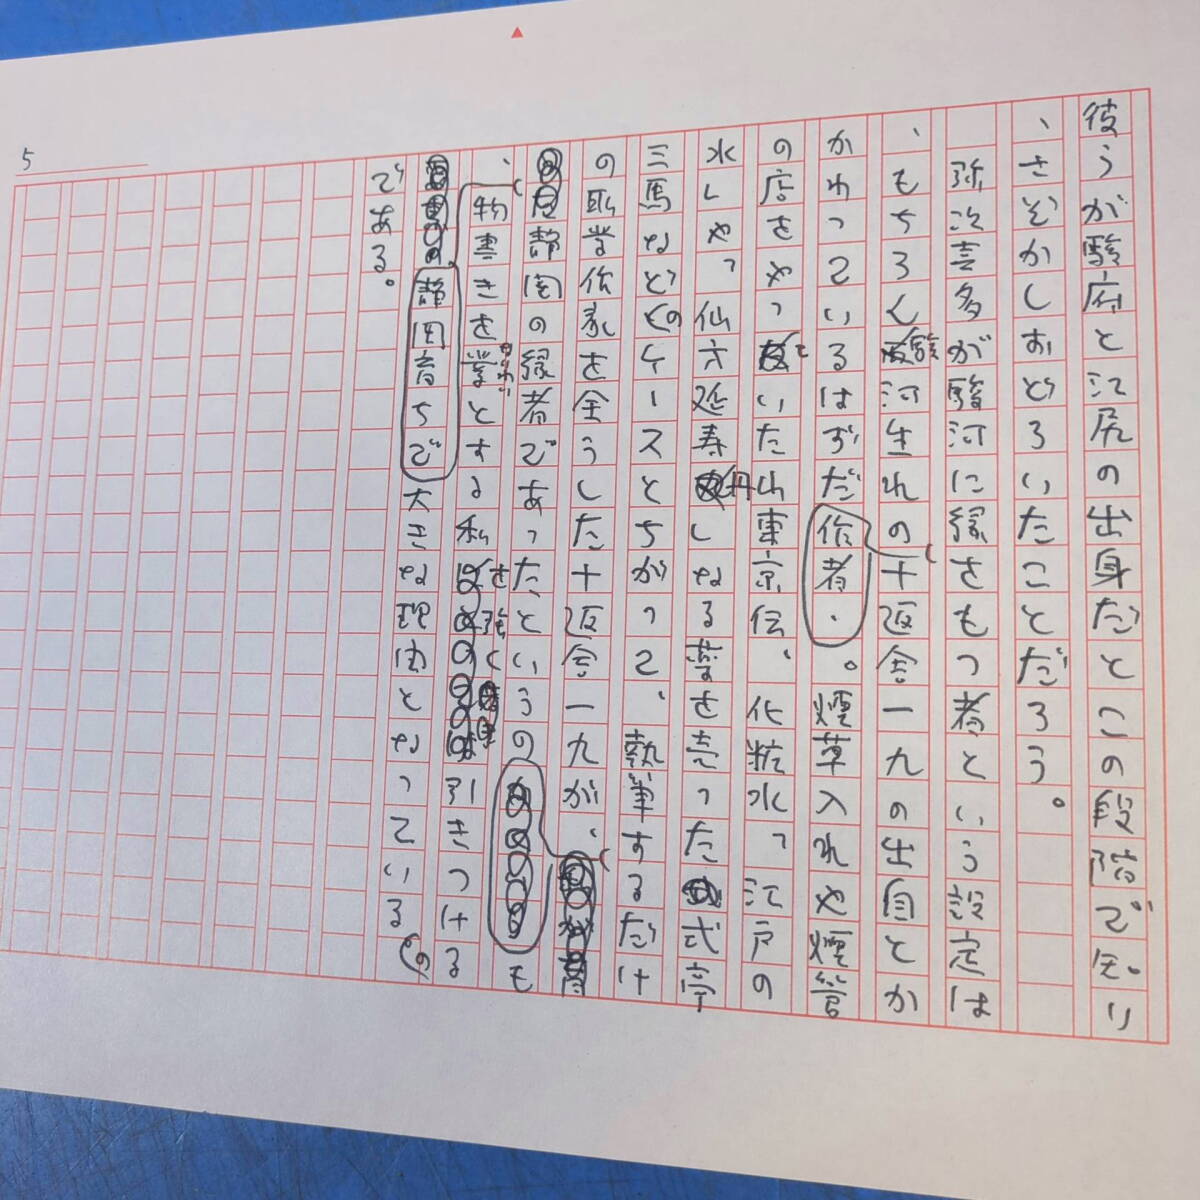 彼らが駿府と江尻の出身だとこの段階で知り
、さぞかしおどろいたことだろう。
弥次喜多が駿河に縁をもつ者という設定は
、もちろん駿河生れの十返舎一九の出自とか
かわっているはずだ作者・。煙草入れや煙管
の店をやっていた山東京伝、化粧水「江戸の
水」や「仙方延寿丹」なる薬を売った式亭
三馬などのケースとちがって、執筆するだけ
の職業作家を全うした十返舎一九が、
静岡の縁者であったというのも
、物書きを業なりわいとする私を強く引きつける
静岡育ちで大きな理由となっているの
である。
5